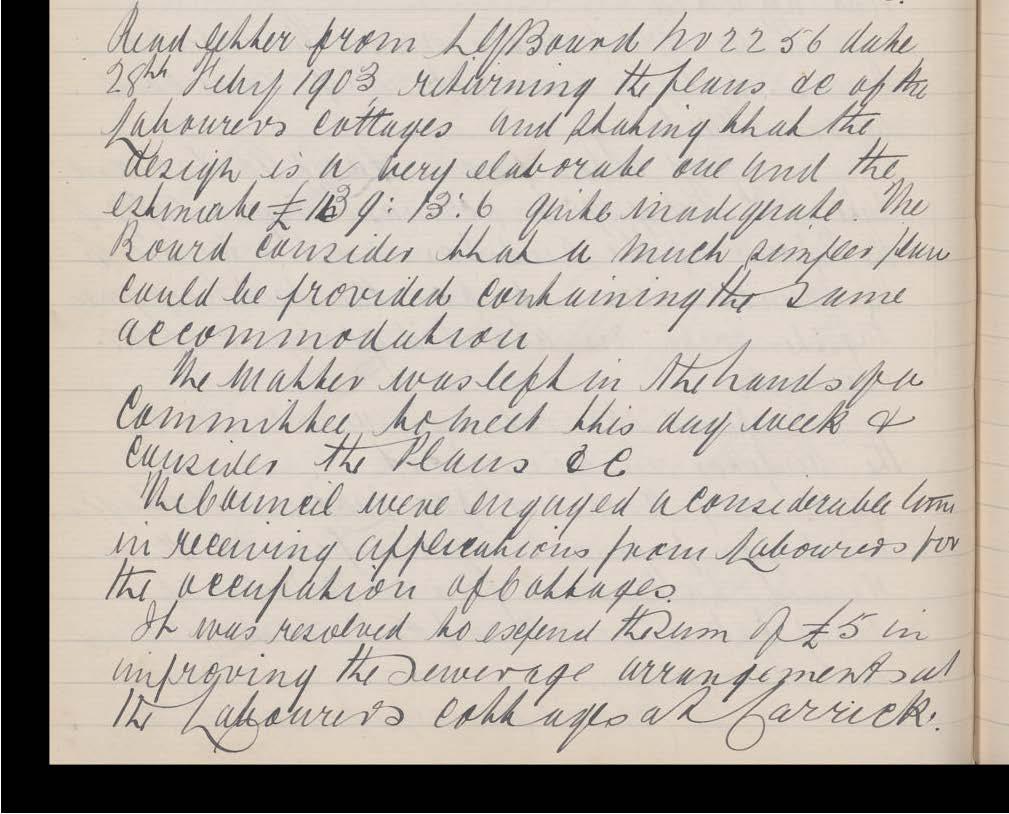 Read letter from LGBoard No 2256 date
28th Feby 1903, returning the plans &c of the
Labourers cottages and stating that the
design is a very elaborate one and the
estimate £139: 13: 6 quite inadequate. The
Board consider that a much simpler plan
could be provided containing the same
accommodation
The matter was left in the hands of a
Committee to meet this day week &
consider the Plans &c
The Council were engaged a considerable time
in receiving applications from Labourers for
the occupation of Cottages.
It was resolved to expend the sum of £5 in
improving the Sewerage arrangements at
the Labourers cottages at Carrick.